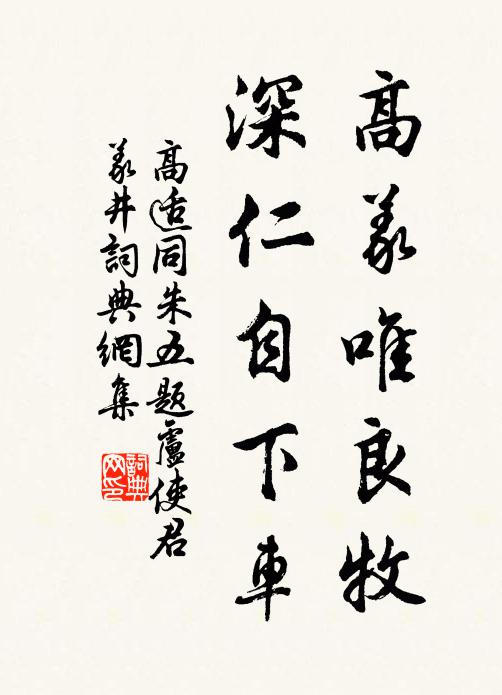 高義唯良牧
深仁自下車
高適同朱五題盧使君
義井詞典網集
詞典
网印